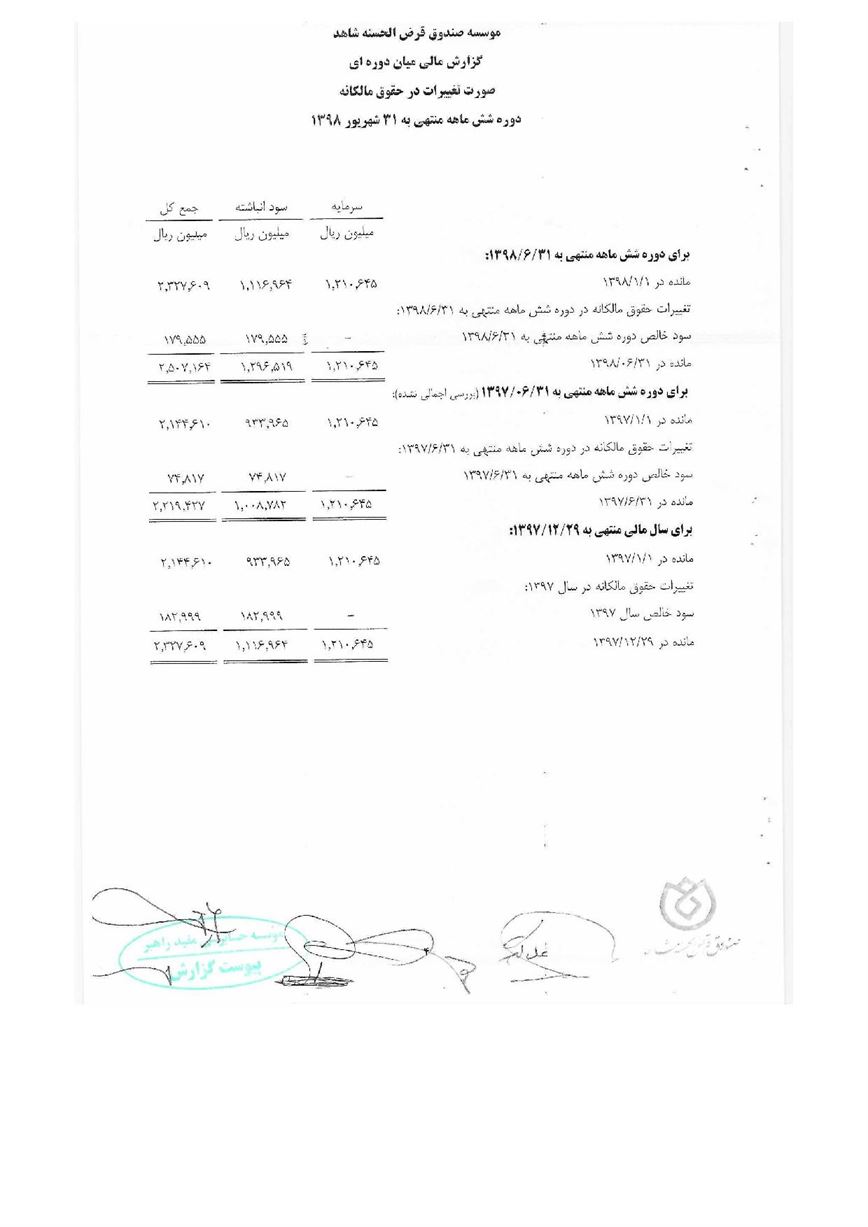 موسسه صندوق قرض الحسنه شاهد
گزارش مالی میان دوره ای
صورت تغییرات در حقوق مالکانه
دوره شش ماهه منتهی به ۳۱ شهریور ۱۳۹۸
سرمایه سود انباشته جمع کل
میلیون ریال میلیون ریال میلیون ریال
برای دوره شش ماهه منتهی به ۱۳۹۸/۶/۳۱:
مانده در ۱۳۹۸/۱/۱ ۱,۲۱۰,۶۴۵ ۱,۱۱۶,۹۶۴ ۲,۳۲۷,۶۰۹
تغییرات حقوق مالکانه در دوره شش ماهه منتهی به ۱۳۹۸/۶/۳۱:
سود خالص دوره شش ماهه منتهی به ۱۳۹۸/۶/۳۱ - ۱۷۹,۵۵۵ ۱۷۹,۵۵۵
مانده در ۱۳۹۸/۰۶/۳۱ ۱,۲۱۰,۶۴۵ ۱,۲۹۶,۵۱۹ ۲,۵۰۷,۱۶۴
برای دوره شش ماهه منتهی به ۱۳۹۷/۰۶/۳۱ (بررسی اجمالی نشده):
مانده در ۱۳۹۷/۱/۱ ۱,۲۱۰,۶۴۵ ۹۳۳,۹۶۵ ۲,۱۴۴,۶۱۰
تغییرات حقوق مالکانه در دوره شش ماهه منتهی به ۱۳۹۷/۶/۳۱:
سود خالص دوره شش ماهه منتهی به ۱۳۹۷/۶/۳۱ - ۷۴,۸۱۷ ۷۴,۸۱۷
مانده در ۱۳۹۷/۶/۳۱ ۱,۲۱۰,۶۴۵ ۱,۰۰۸,۷۸۲ ۲,۲۱۹,۴۲۷
برای سال مالی منتهی به ۱۳۹۷/۱۲/۲۹:
مانده در ۱۳۹۷/۱/۱ ۱,۲۱۰,۶۴۵ ۹۳۳,۹۶۵ ۲,۱۴۴,۶۱۰
تغییرات حقوق مالکانه در سال ۱۳۹۷:
سود خالص سال ۱۳۹۷ - ۱۸۲,۹۹۹ ۱۸۲,۹۹۹
مانده در ۱۳۹۷/۱۲/۲۹ ۱,۲۱۰,۶۴۵ ۱,۱۱۶,۹۶۴ ۲,۳۲۷,۶۰۹
موسسه حسابرسی مفید راهبر
پیوست گزارش